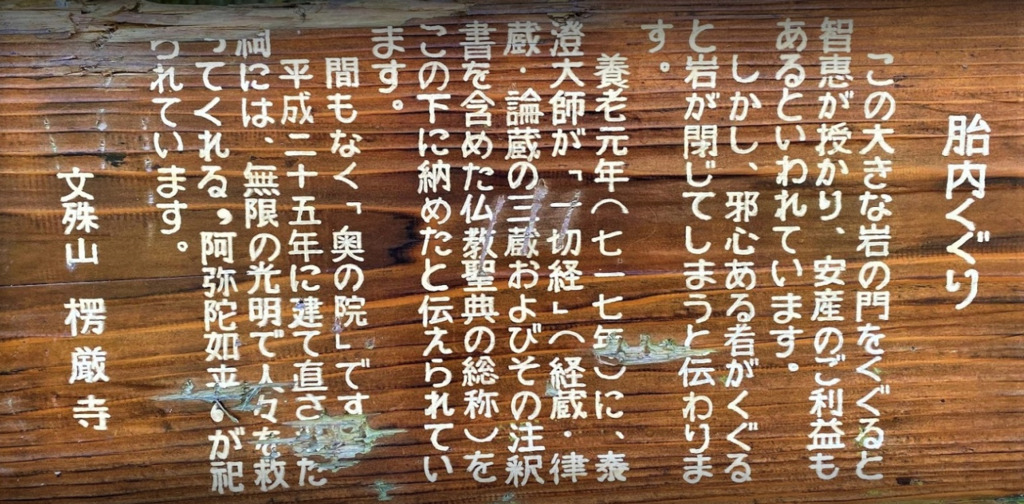 胎内くぐり
この大きな岩の門をくぐると
智恵が授かり、安産のご利益も
あるといわれています。
しかし、邪心ある者がくぐる
と岩が閉じてしまうと伝わりま
す。
養老元年(七一七年)に、泰
澄大師が「一切経」(経蔵・律
蔵・論蔵の三蔵およびその注釈
書を含めた仏教聖典の総称)を
この下に納めたと伝えられてい
ます。
間もなく「奥の院」です
平成二十五年に建て直さ た
祠には、無限の光明で人々を救
ってくれる"阿弥陀如来"が祀
られています。
文殊山 楞厳寺